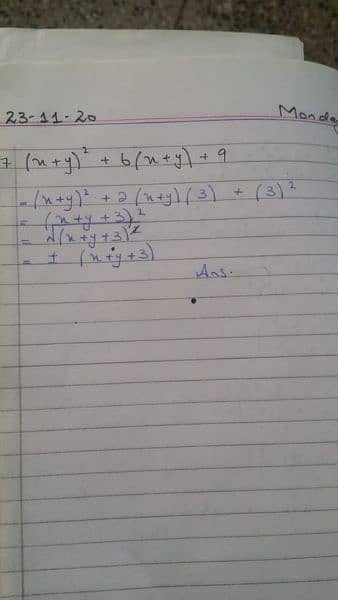 23-11-20 Monday
7 (x+y)² + 6(x+y) + 9
= (x+y)² + 2(x+y)(3) + (3)²
= (x+y+3)²
= √(x+y+3)²
= ± (x+y+3)
Ans.